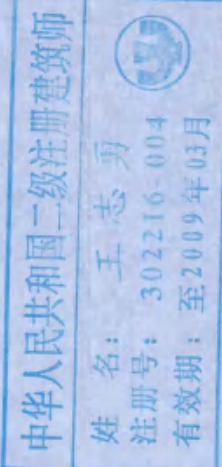 中华人民共和国二级注册建筑师
姓 名: 王志勇
注册号: 302216-004
有效期: 至2009年03月